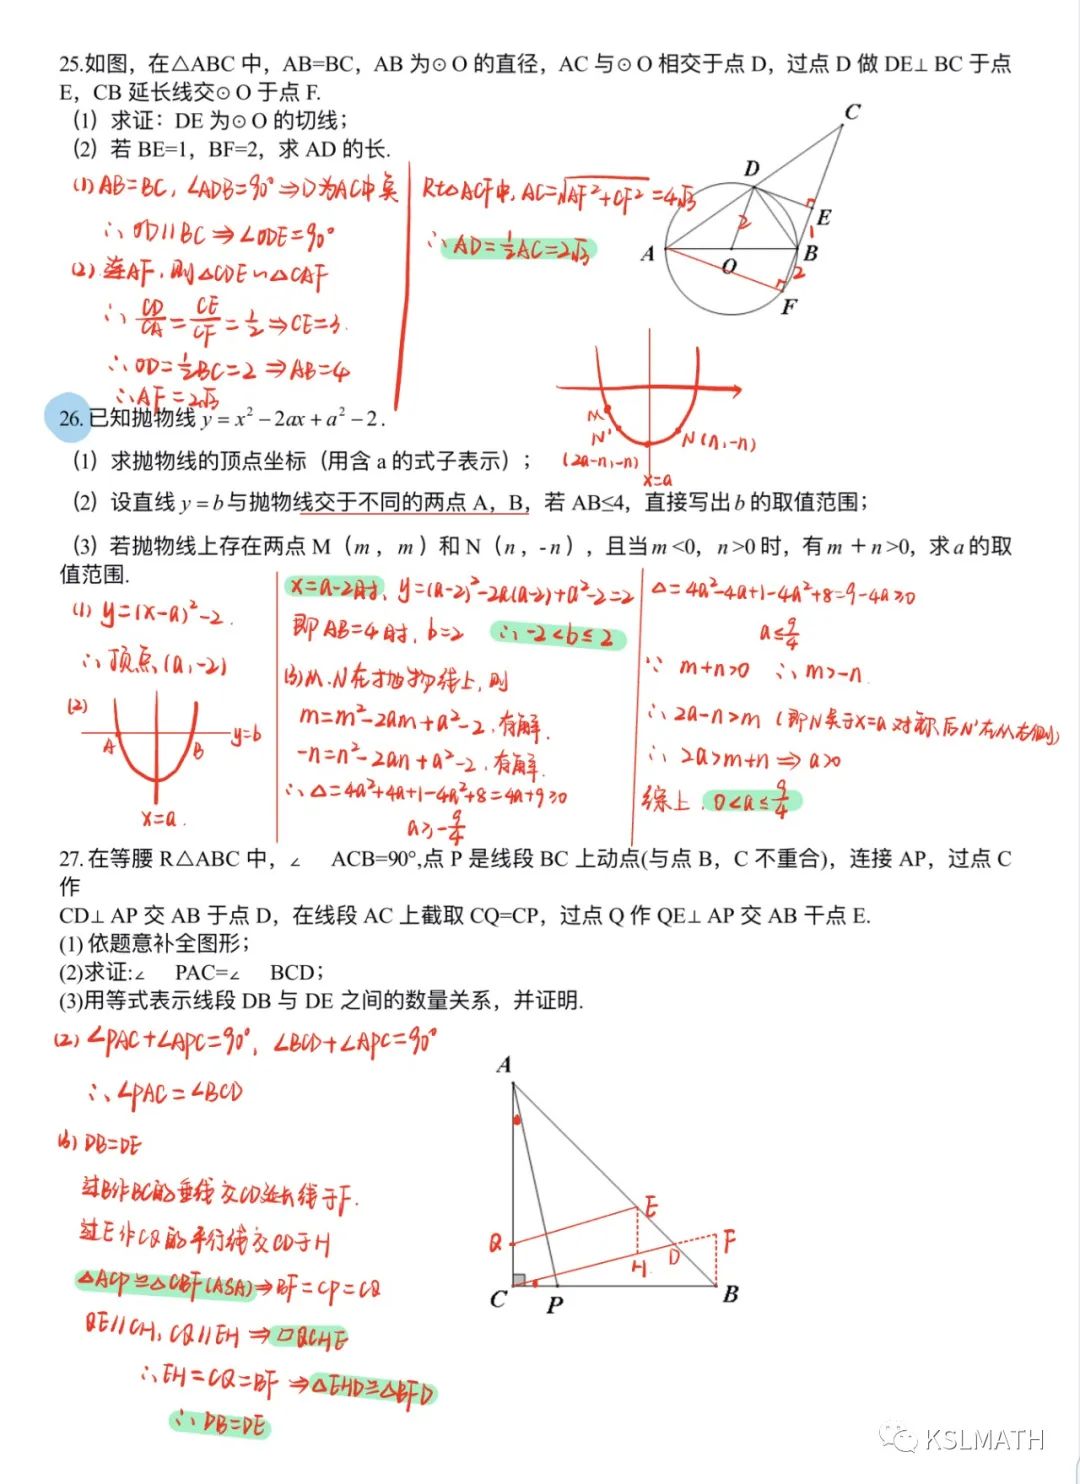 25.如图，在△ABC 中，AB=BC，AB 为⊙O 的直径，AC 与⊙O 相交于点 D，过点 D 做 DE⊥BC 于点
E，CB 延长线交⊙O 于点 F.
（1）求证：DE 为⊙O 的切线；
（2）若 BE=1，BF=2，求 AD 的长.
(1) AB=BC，∠ADB=90°⇒D为AC中点
∴OD∥BC⇒∠ODE=90°
(2) 连AF，则△CDE∽△CAF
∴CD/CA=CE/CF=1/2⇒CE=3.
∴OD=1/2BC=2⇒AB=4
∴AF=2√3
Rt△ACF中，AC=√AF²+CF²=4√3
∴AD=1/2AC=2√3
C
D
E
2
1
A
O
B
2
F
26.已知抛物线 y=x²−2ax+a²−2.
（1）求抛物线的顶点坐标（用含 a 的式子表示）；
（2）设直线 y=b 与抛物线交于不同的两点 A，B，若 AB≤4，直接写出 b 的取值范围；
（3）若抛物线上存在两点 M（m，m）和 N（n，-n），且当 m<0，n>0 时，有 m+n>0，求 a 的取
值范围.
M
N'
N(n,-n)
(2a-n,-n)
x=a
(1) y=(x-a)²-2.
∴顶点(a,-2)
(2)
A
B
y=b
x=a.
x=a-2时，y=(a-2)²-2a(a-2)+a²-2=2
即AB=4时，b=2 ∴-2<b≤2
(3) M、N在抛物线上，则
m=m²-2am+a²-2，有解.
-n=n²-2an+a²-2，有解.
∴△=4a²+4a+1-4a²+8=4a+9≥0
a≥-9/4
△=4a²-4a+1-4a²+8=9-4a≥0
a≤9/4
∵m+n>0 ∴m>-n.
∴2a-n>m（即N关于x=a对称后N'在M右侧）
∴2a>m+n⇒a>0
综上，0<a≤9/4
27.在等腰 R△ABC 中，∠ ACB=90°,点 P 是线段 BC 上动点(与点 B，C 不重合)，连接 AP，过点 C
作
CD⊥AP 交 AB 于点 D，在线段 AC 上截取 CQ=CP，过点 Q 作 QE⊥AP 交 AB 于点 E.
(1) 依题意补全图形；
(2)求证:∠ PAC=∠ BCD；
(3)用等式表示线段 DB 与 DE 之间的数量关系，并证明.
(2) ∠PAC+∠APC=90°，∠BCD+∠APC=90°
∴∠PAC=∠BCD
(3) DB=DE
过B作BC的垂线交CD延长线于F.
过E作CQ的平行线交CD于H
△ACP≌△CBF(ASA)⇒BF=CP=CQ
QE∥CH，CQ∥EH⇒□QCHE
∴EH=CQ=BF⇒△EHD≌△BFD
∴DB=DE
A
E
Q
F
H
D
C
P
B
KSLMATH